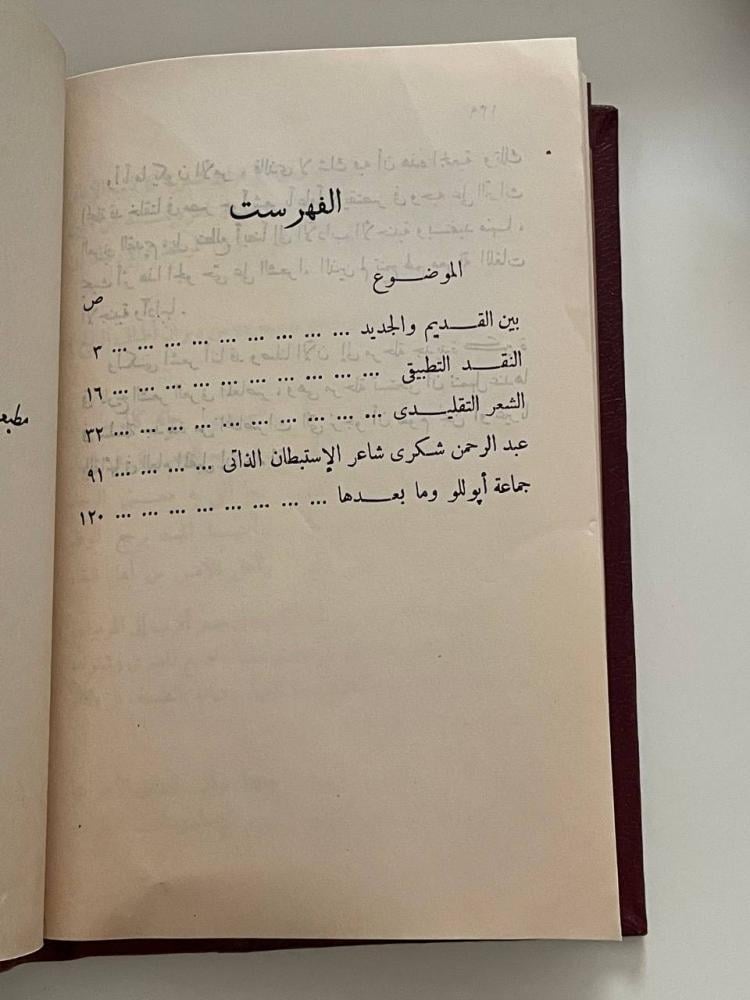 الفهرست
الموضـــوع
ص
بين القـــديم والجديد ... ... ... ... ... ... ... ... ... ٣
النقـــد التطبيقى ... ... ... ... ... ... ... ... ... ... ١٦
الشعر التقليـــدى ... ... ... ... ... ... ... ... ... ... ٣٢
عبد الرحمن شكرى شاعر الإستبطان الذاتى ... ... ... ... ٩١
جماعة أپوللو وما بعـــدها ... ... ... ... ... ... ... ... ١٢٠